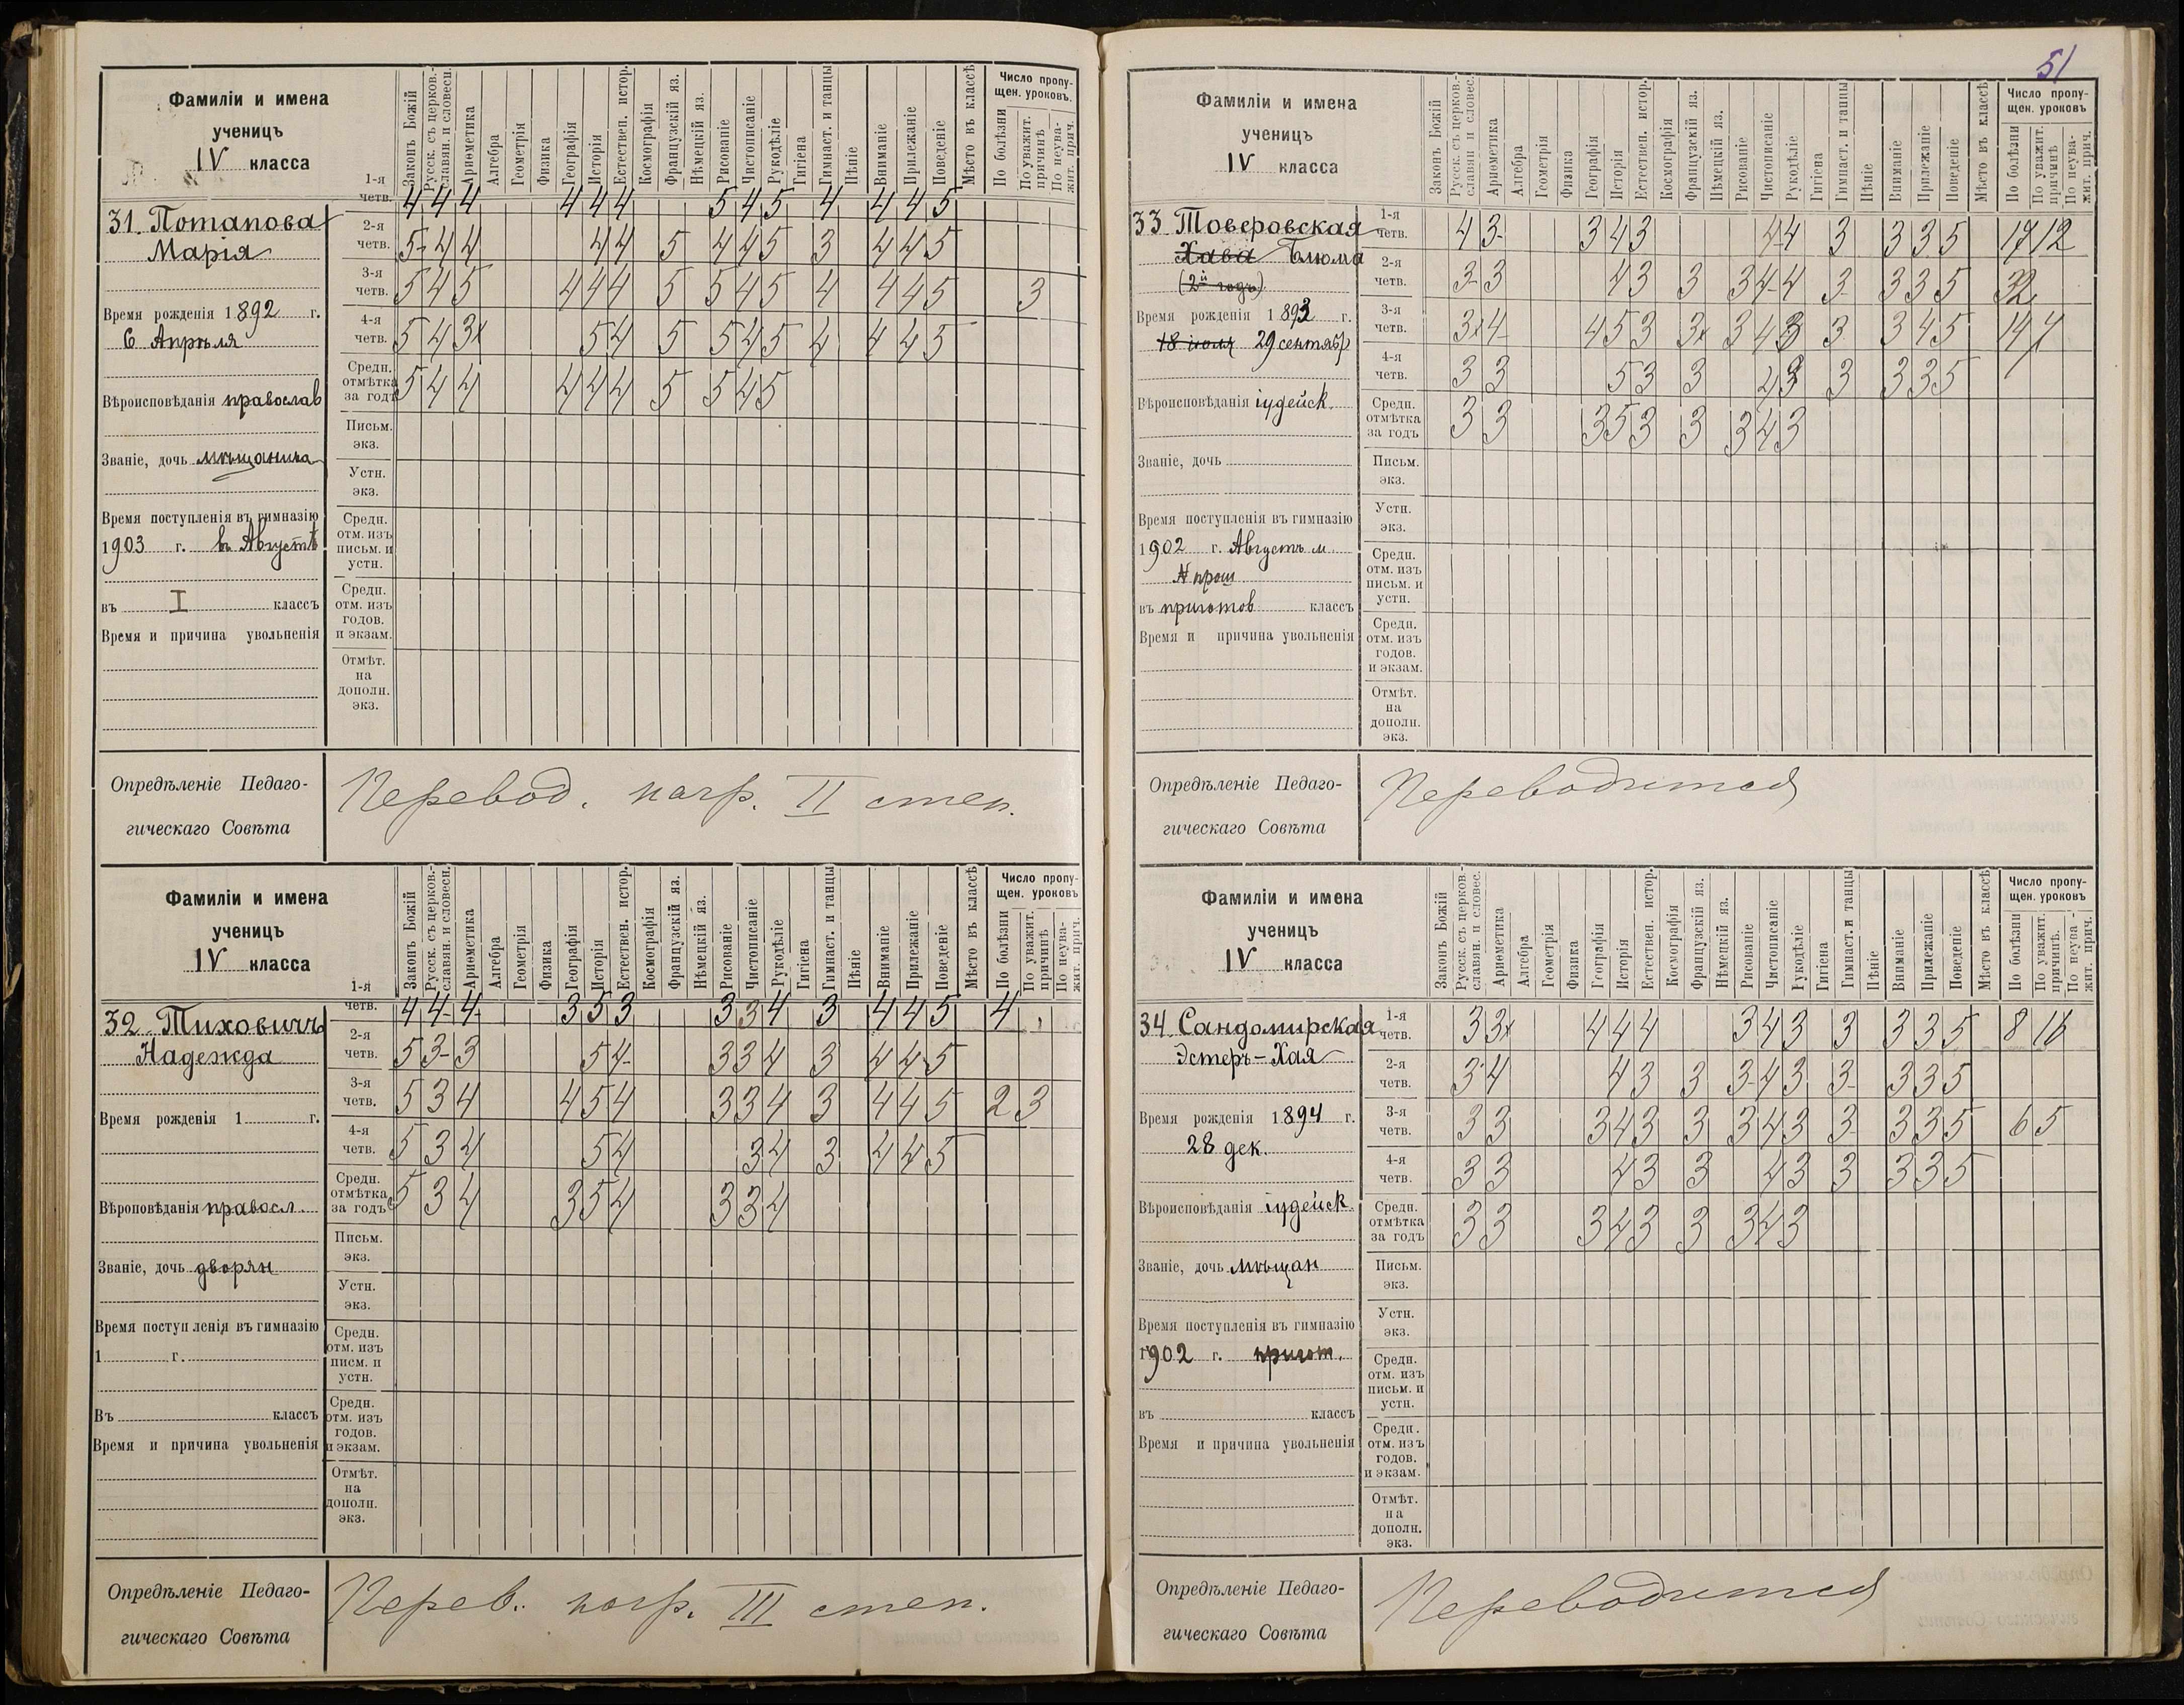 51
Фамиліи и имена
ученицъ
IV класса
Законъ Божій
Русск. съ церков.-
славян. и словесн.
Ариѳметика
Алгебра
Геометрія
Физика
Географія
Исторія
Естествен. истор.
Космографія
Французскій яз.
Нѣмецкій яз.
Рисованіе
Чистописаніе
Рукодѣліе
Гигіена
Гимнаст. и танцы
Пѣніе
Вниманіе
Прилежаніе
Поведеніе
Мѣсто въ классѣ
Число пропу-
щен. уроковъ.
По болѣзни
По уважит.
причинѣ
По неува-
жит. прич.
31. Потапова
Марія
Время рожденія 1892 г.
6 Апрѣля
Вѣроисповѣданія православ
Званіе, дочь мѣщанина
Время поступленія въ гимназію
1903 г. въ Августѣ
въ I классъ
Время и причина увольненія
1-я четв. 4 4 4 4 4 4 5 4 5 4 4 4 5
2-я четв. 5- 4 4 4 4 5 4 4 5 3 4 4 5
3-я четв. 5 4 5 4 4 4 5 5 4 5 4 4 4 5 3
4-я четв. 5 4 3x 5 4 5 5 4 5 4 4 4 5
Средн. отмѣтка за годъ 5 4 4 4 4 4 5 5 4 5
Письм. экз.
Устн. экз.
Средн. отм. изъ письм. и устн.
Средн. отм. изъ годов. и экзам.
Отмѣт. на дополн. экз.
Опредѣленіе Педаго-
гическаго Совѣта
Перевод. нагр. II степ.
Фамиліи и имена
ученицъ
IV класса
Законъ Божій
Русск. съ церков.-
славян. и словесн.
Ариѳметика
Алгебра
Геометрія
Физика
Географія
Исторія
Естествен. истор.
Космографія
Французскій яз.
Нѣмецкій яз.
Рисованіе
Чистописаніе
Рукодѣліе
Гигіена
Гимнаст. и танцы
Пѣніе
Вниманіе
Прилежаніе
Поведеніе
Мѣсто въ классѣ
Число пропу-
щен. уроковъ
По болѣзни
По уважит.
причинѣ
По неува-
жит. прич.
32. Тиховичъ
Надежда
Время рожденія 1 г.
Вѣроповѣданія правосл.
Званіе, дочь дворян
Время поступленія въ гимназію
1 г.
Въ классъ
Время и причина увольненія
1-я четв. 4 4- 4- 3 5 3 3 3 4 3 4 4 5 4
2-я четв. 5 3- 3 5 4- 3 3 4 3 4 4 5
3-я четв. 5 3 4 4 5 4 3 3 4 3 4 4 5 2 3
4-я четв. 5 3 4 5 4 3 4 3 4 4 5
Средн. отмѣтка за годъ 5 3 4 3 5 4 3 3 4
Письм. экз.
Устн. экз.
Средн. отм. изъ писм. и устн.
Средн. отм. изъ годов. и экзам.
Отмѣт. на дополн. экз.
Опредѣленіе Педаго-
гическаго Совѣта
Перев. нагр. III степ.
Фамиліи и имена
ученицъ
IV класса
Законъ Божій
Русск. съ церков.-
славян и словес.
Ариѳметика
Алгебра
Геометрія
Физика
Географія
Исторія
Естествен. истор.
Космографія
Французскій яз.
Нѣмецкій яз.
Рисованіе
Чистописаніе
Рукодѣліе
Гигіена
Гимнаст. и танцы
Пѣніе
Вниманіе
Прилежаніе
Поведеніе
Мѣсто въ классѣ
Число пропу-
щен. уроковъ
По болѣзни
По уважит.
причинѣ
По неува-
жит. прич.
33 Товеровская
Хава Блюма
(2й годъ)
Время рожденія 1893 г.
18 іюля 29 сентябр
Вѣроисповѣданія іудейск.
Званіе, дочь
Время поступленія въ гимназію
1902 г. Августъ м
N прош
въ приготов классъ
Время и причина увольненія
1-я четв. 4 3- 3 4 3 4 4 3 3 3 5 17 12
2-я четв. 3- 3 4 3 3 3 4- 4 3- 3 3 5 32
3-я четв. 3x 4- 4 5 3 3x 3 4 3 3 3 4 5 14
4-я четв. 3 3 5 3 3 4 3 3 3 3 5
Средн. отмѣтка за годъ 3 3 3 5 3 3 3 4 3
Письм. экз.
Устн. экз.
Средн. отм. изъ письм. и устн.
Средн. отм. изъ годов. и экзам.
Отмѣт. на дополн. экз.
Опредѣленіе Педаго-
гическаго Совѣта
Переводится
Фамиліи и имена
ученицъ
IV класса
Законъ Божій
Русск. съ церков.-
славян. и словес.
Ариѳметика
Алгебра
Геометрія
Физика
Географія
Исторія
Естествен. истор.
Космографія
Французскій яз.
Нѣмецкій яз.
Рисованіе
Чистописаніе
Рукодѣліе
Гигіена
Гимнаст. и танцы
Пѣніе
Вниманіе
Прилежаніе
Поведеніе
Мѣсто въ классѣ
Число пропу-
щен. уроковъ
По болѣзни
По уважит.
причинѣ.
По неува-
жит. прич.
34 Сандомирская
Эстеръ-Хая
Время рожденія 1894 г.
28 дек.
Вѣроисповѣданія іудейск.
Званіе, дочь мѣщан
Время поступленія въ гимназію
1902 г. пригот.
въ классъ
Время и причина увольненія
1-я четв. 3 3x 4 4 4 3 4 3 3 3 3 5 8 16
2-я четв. 3- 4 4 3 3 3- 4 3 3- 3 3 5
3-я четв. 3 3 3 4 3 3 3 4 3 3- 3 3 5 6 5
4-я четв. 3 3 4 3 3 4 3 3 3 3 5
Средн. отмѣтка за годъ 3 3 3 4 3 3 3 4 3
Письм. экз.
Устн. экз.
Средн. отм. изъ письм. и устн.
Средн. отм. изъ годов. и экзам.
Отмѣт. на дополн. экз.
Опредѣленіе Педаго-
гическаго Совѣта
Переводится